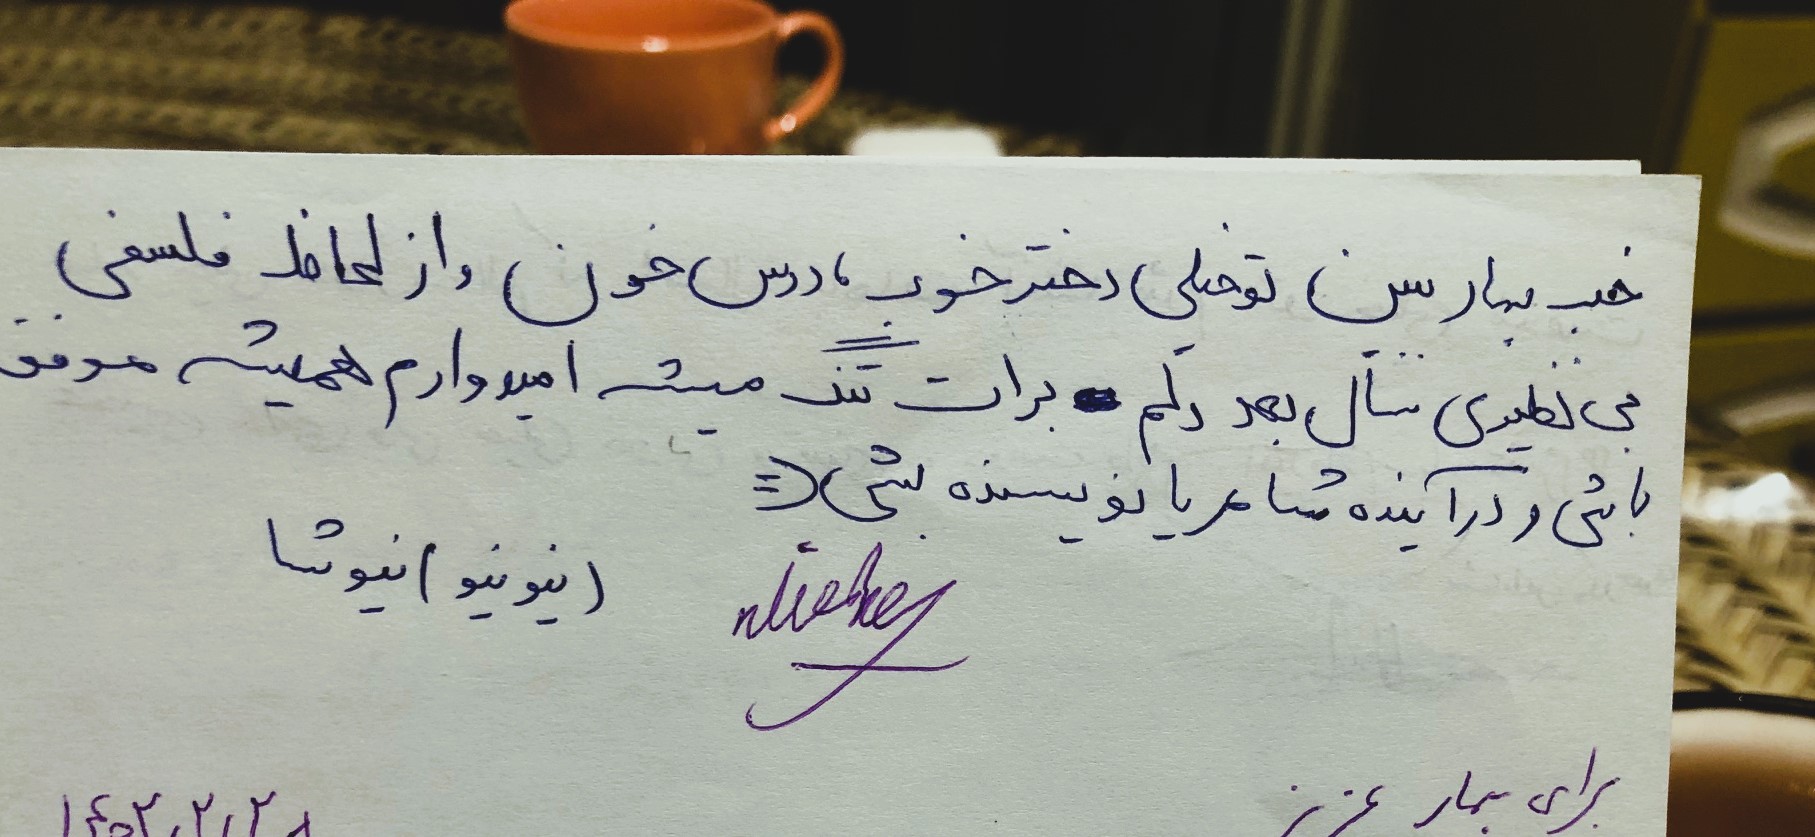 خب بهار سن تو خیلی دختر خوب، درس خون و از لحاظ فلسفی
بی نظیری سال بعد دلم برات تنگ میشه امیدوارم همیشه موفق
باشی و در آینده شاعر یا نویسنده بشی (=
(نیو نیو) نیوشا
برای بهار عزیز
۱۴۰۲٫۲٫۲۸